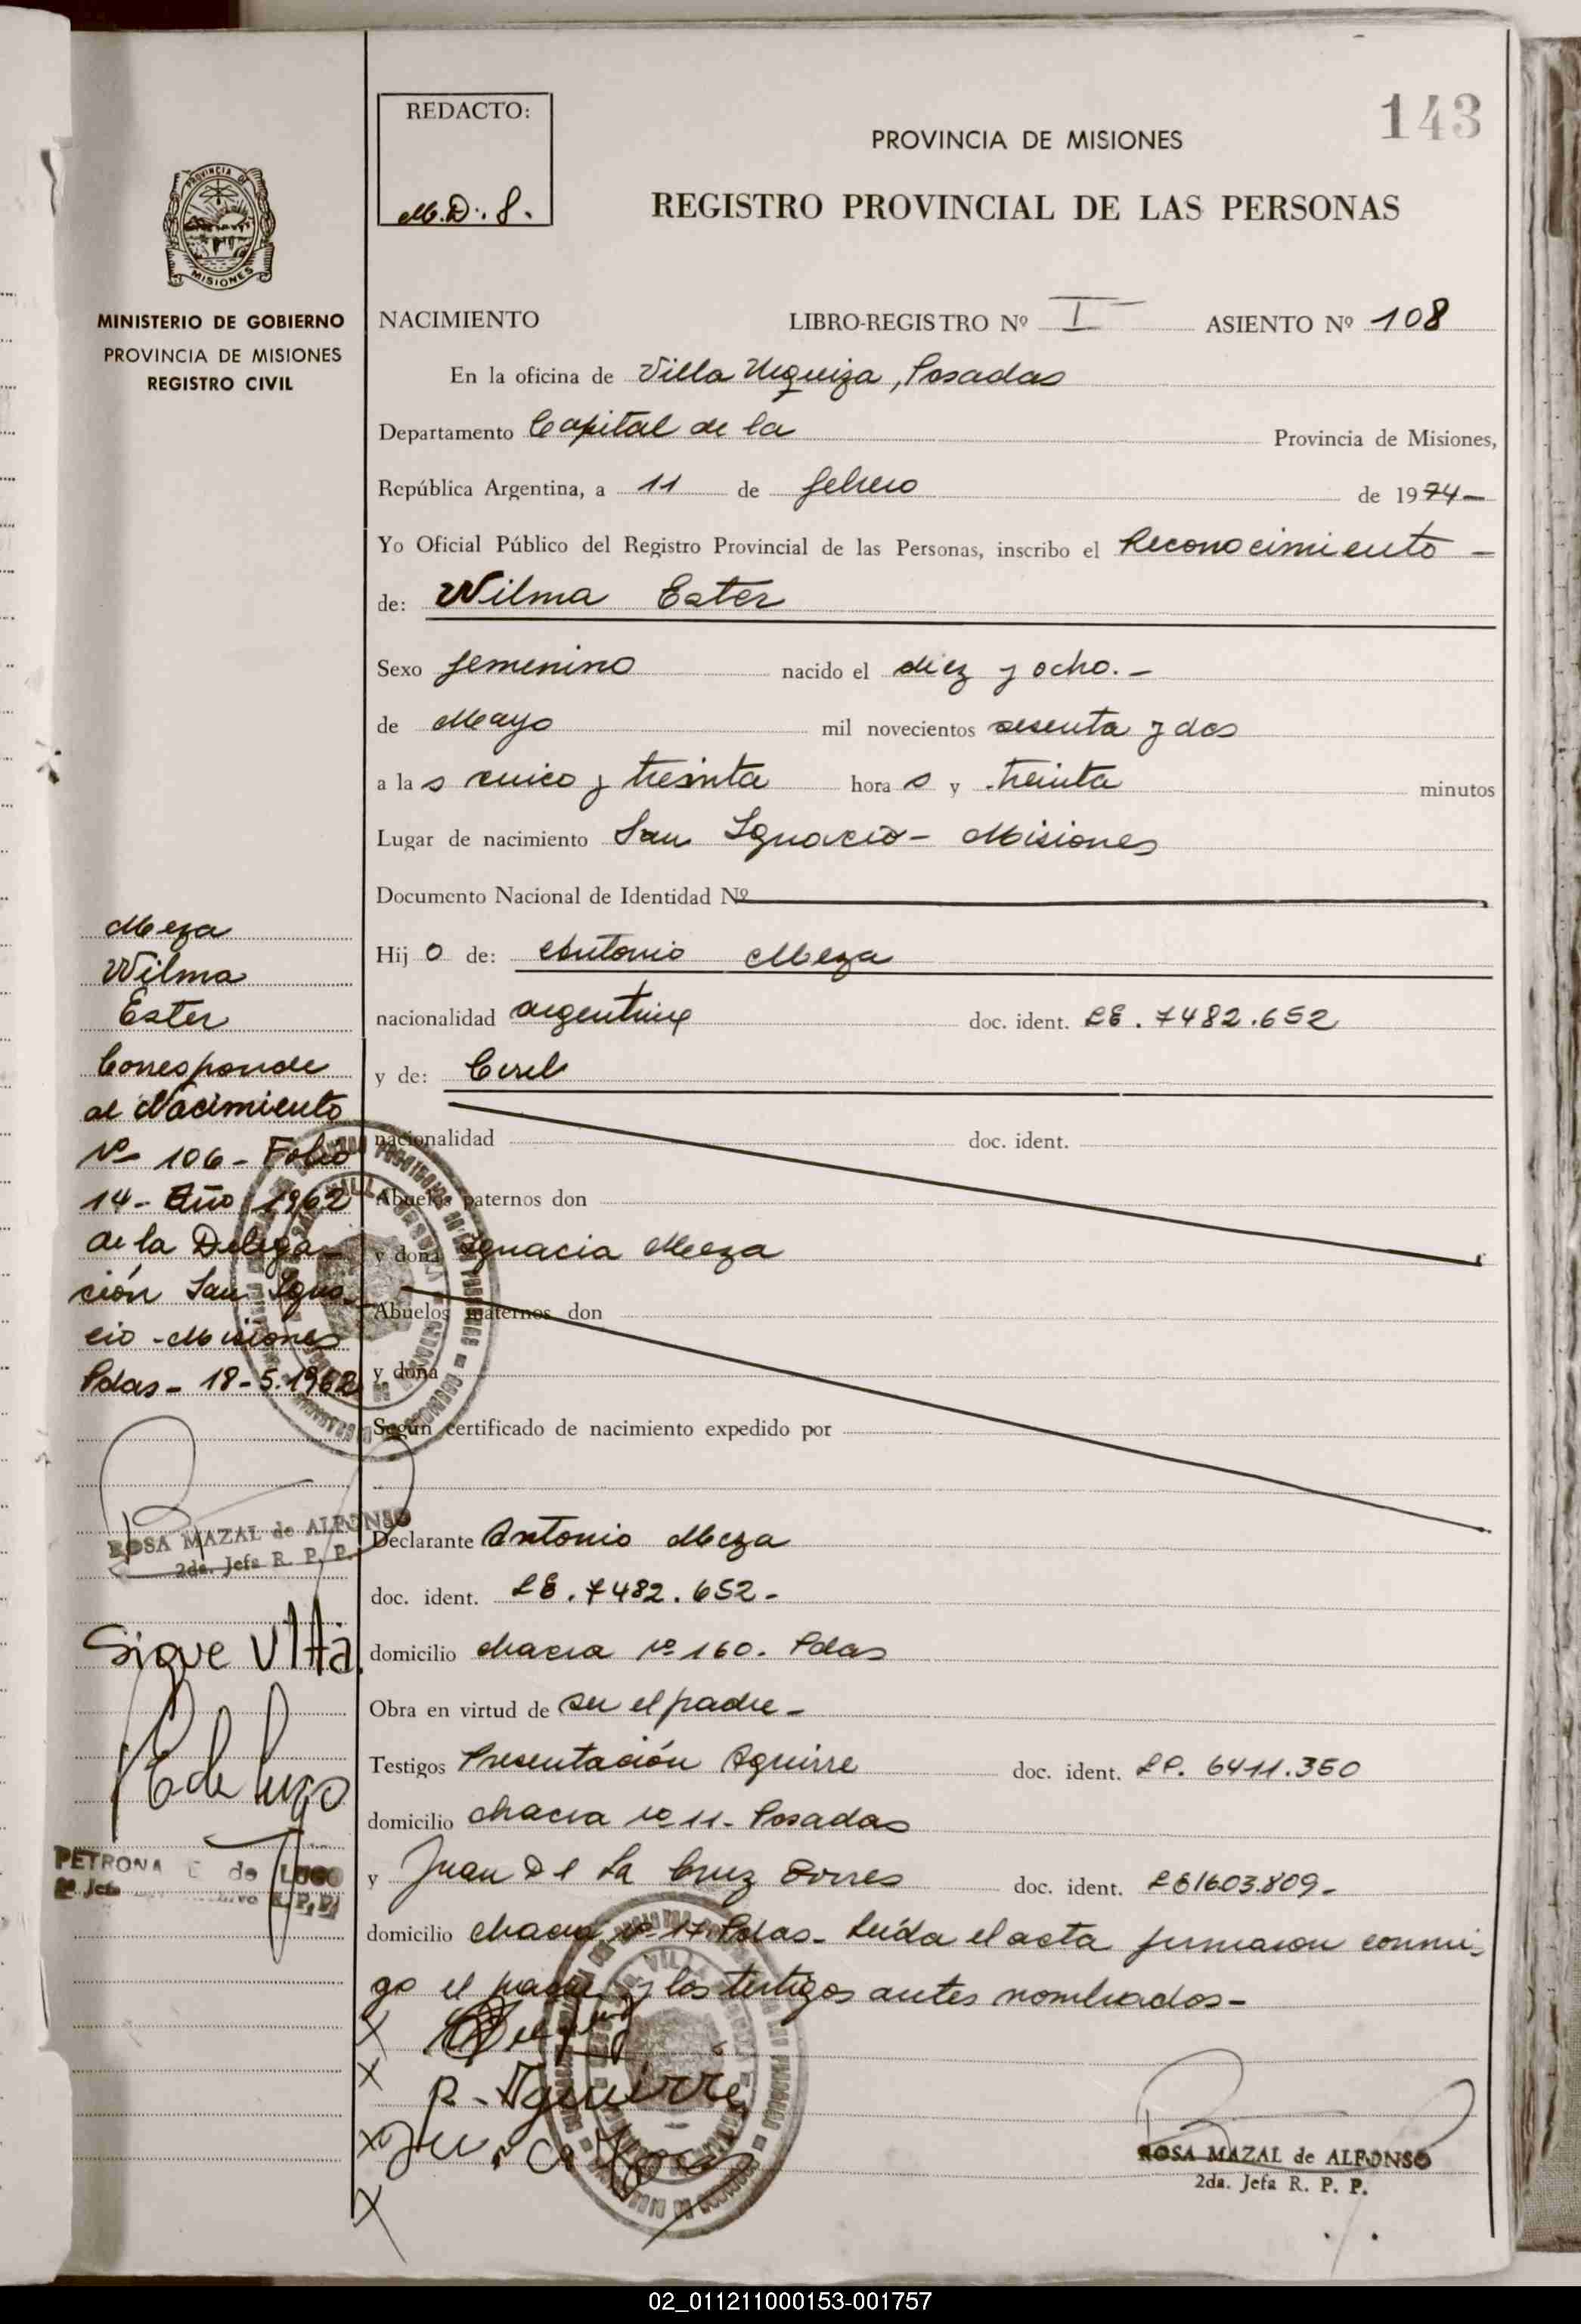 143
REDACTO:
M.D.f.
PROVINCIA DE MISIONES
REGISTRO PROVINCIAL DE LAS PERSONAS
PROVINCIA DE
MISIONES
MINISTERIO DE GOBIERNO
PROVINCIA DE MISIONES
REGISTRO CIVIL
NACIMIENTO LIBRO-REGISTRO Nº I ASIENTO Nº 108
En la oficina de Villa Urquiza, Posadas
Departamento Capital de la Provincia de Misiones,
República Argentina, a 11 de febrero de 1974-
Yo Oficial Público del Registro Provincial de las Personas, inscribo el Reconocimiento -
de: Wilma Ester
Sexo femenino nacido el diez y ocho.-
de Mayo mil novecientos sesenta y dos
a la s cinco y treinta hora s y treinta minutos
Lugar de nacimiento San Ignacio - Misiones
Documento Nacional de Identidad Nº
Hij o de: Antonio Meza
nacionalidad argentina doc. ident. LE. 7482.652
y de:
nacionalidad doc. ident.
Abuelos paternos don
y doña Ignacia Meza
Abuelos maternos don
y doña
Según certificado de nacimiento expedido por
Declarante Antonio Meza
doc. ident. LE. 7482.652-
domicilio chacra nº 160. Pdas
Obra en virtud de ser el padre-
Testigos Presentación Aguirre doc. ident. 6411.350
domicilio chacra nº 11- Posadas
y Juan De La Cruz Torres doc. ident. LE1603.809-
domicilio chacra nº 17. Pdas- Leída el acta firmaron conmi-
go el padre y los testigos antes nombrados-
P. Aguirre
ROSA MAZAL de ALFONSO
2da. Jefa R. P. P.
Meza
Wilma
Ester
Corresponde
al Nacimiento
Nº 106 - Folio
14- Año 1962
de la Delega-
ción San Igna-
cio - Misiones
Pdas- 18-5-1962
ROSA MAZAL de ALFONSO
2da. Jefa R. P. P.
Sigue Vlta.
PETRONA de LUGO
R.P.P.
02_011211000153-001757